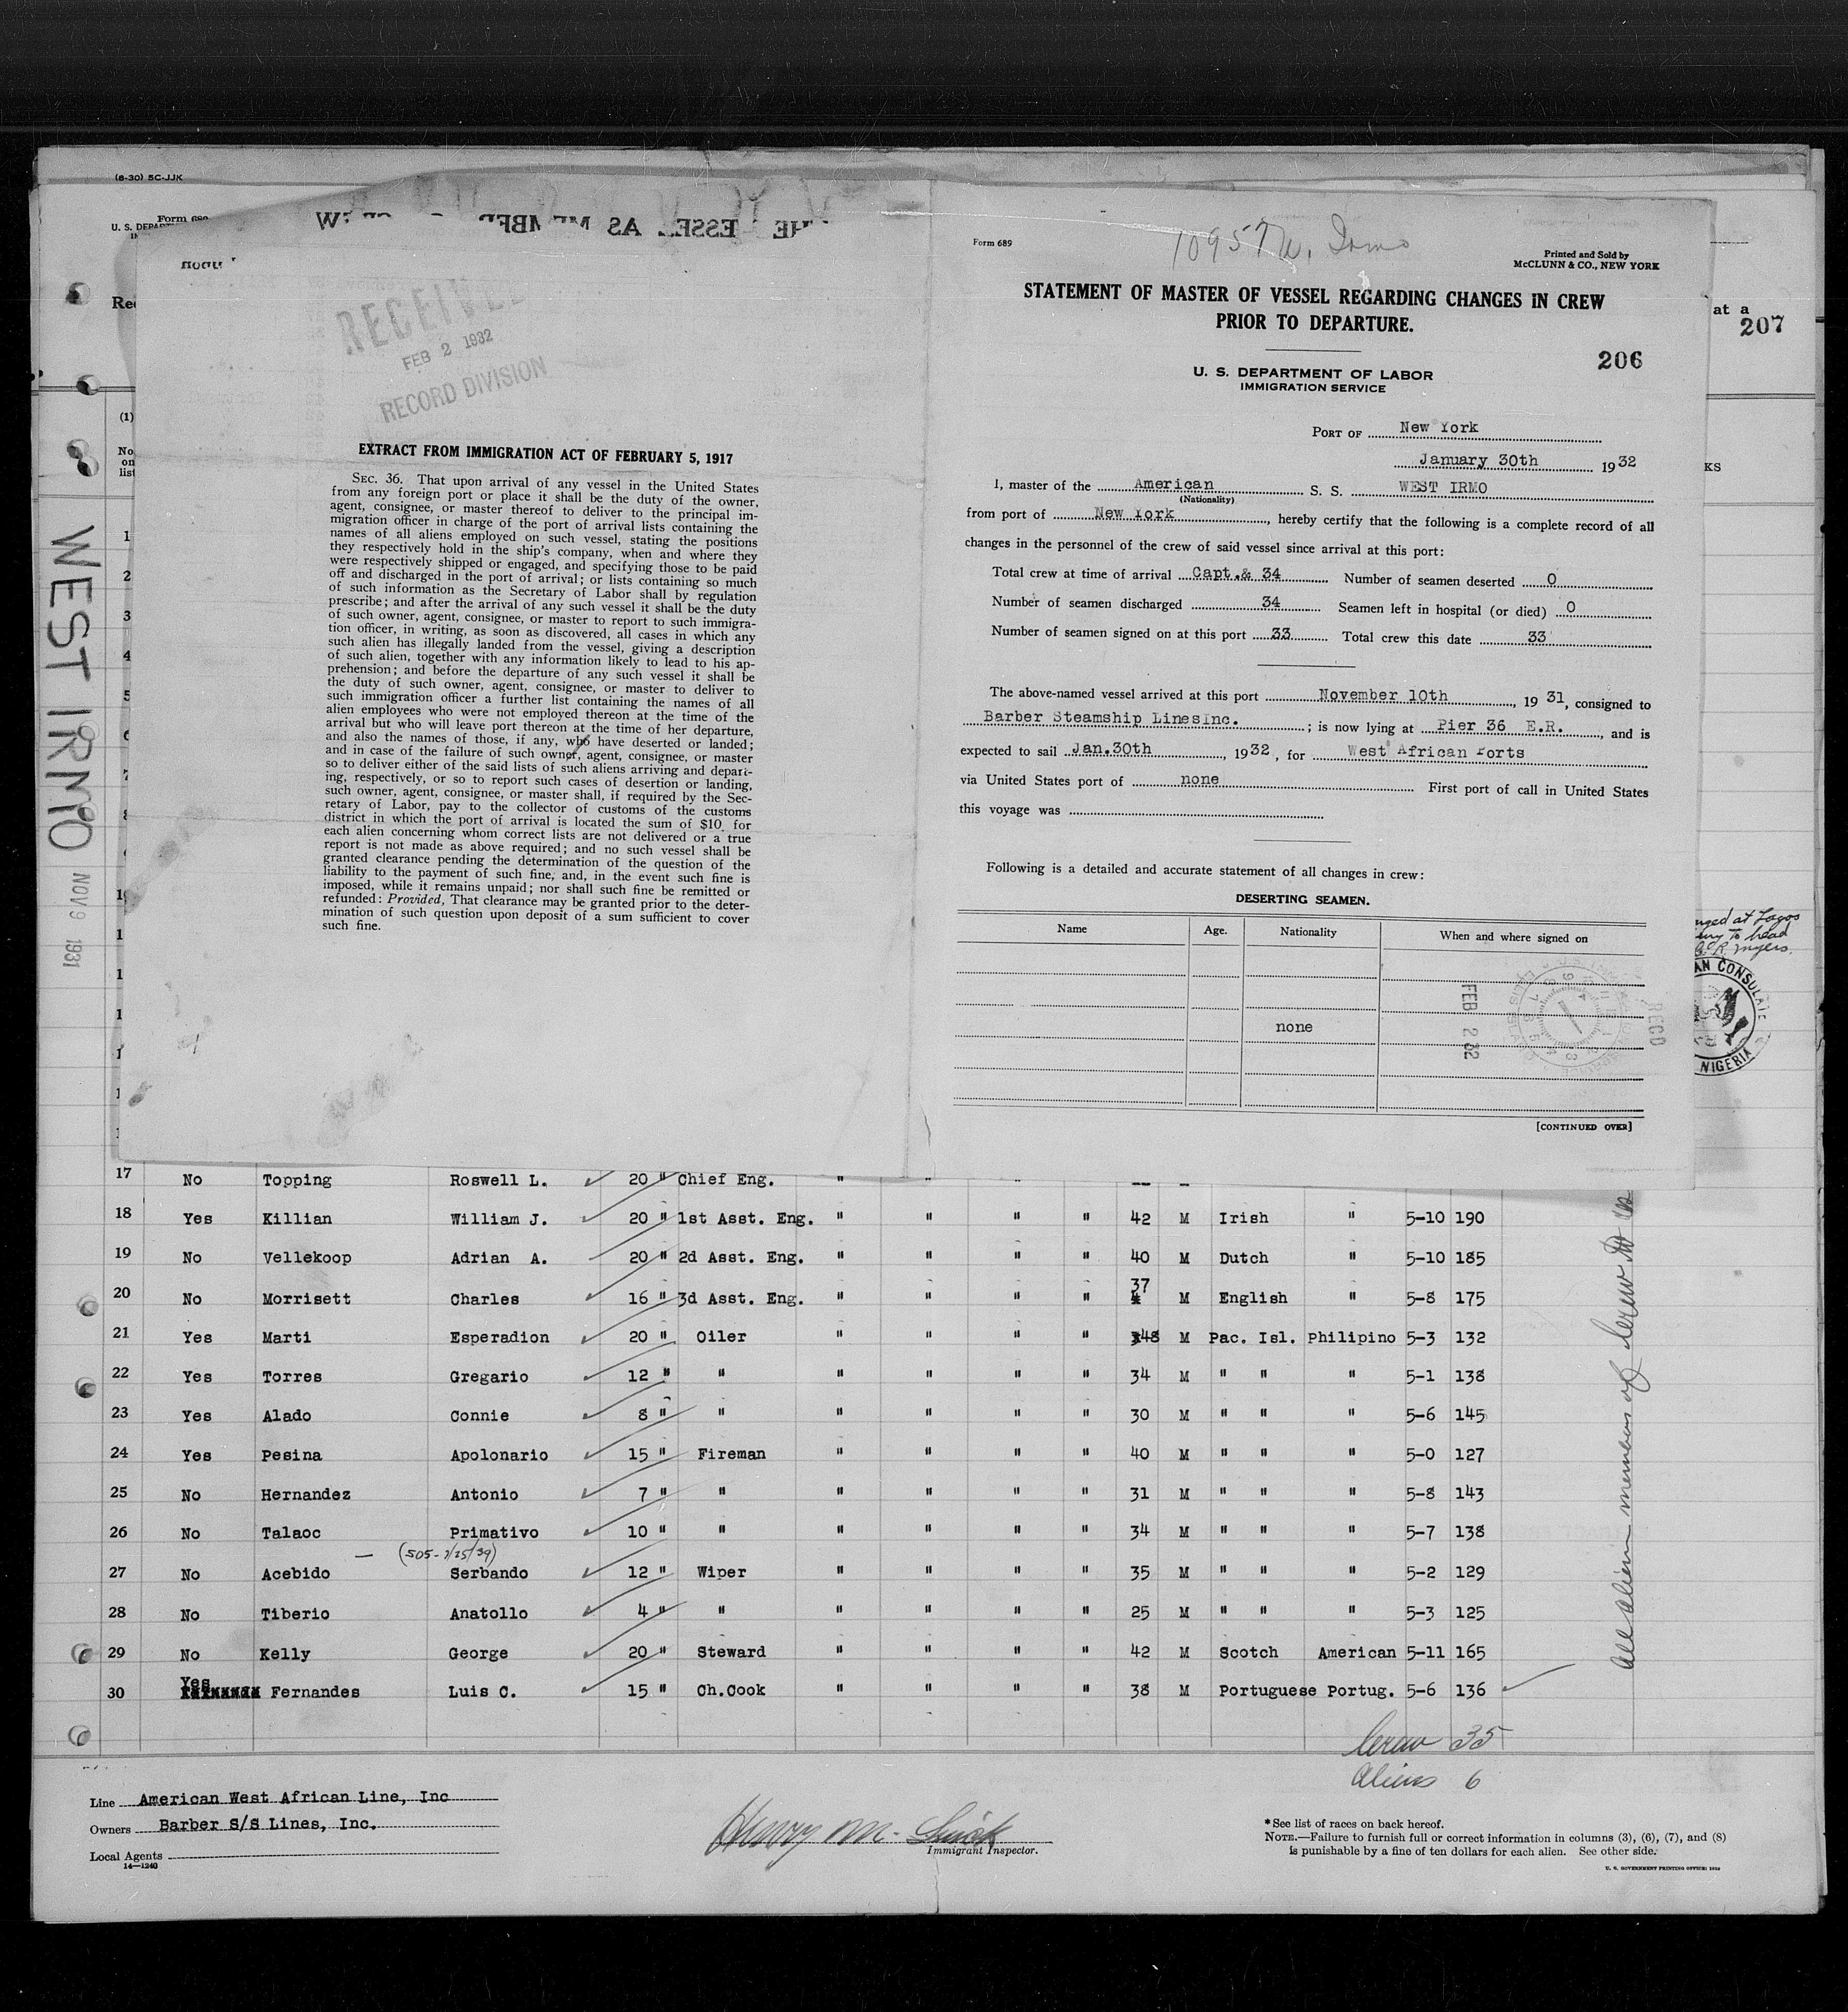 (8-30) 5C-JJK
Form 689
U. S. DEPA
Rec
at a
207
(1)
No.
on
list
KS
WEST IRMO
NOV 9 1931
RECEIVE
FEB 2 1932
RECORD DIVISION
EXTRACT FROM IMMIGRATION ACT OF FEBRUARY 5, 1917
SEC. 36. That upon arrival of any vessel in the United States
from any foreign port or place it shall be the duty of the owner,
agent, consignee, or master thereof to deliver to the principal im-
migration officer in charge of the port of arrival lists containing the
names of all aliens employed on such vessel, stating the positions
they respectively hold in the ship's company, when and where they
were respectively shipped or engaged, and specifying those to be paid
off and discharged in the port of arrival; or lists containing so much
of such information as the Secretary of Labor shall by regulation
prescribe; and after the arrival of any such vessel it shall be the duty
of such owner, agent, consignee, or master to report to such immigra-
tion officer, in writing, as soon as discovered, all cases in which any
such alien has illegally landed from the vessel, giving a description
of such alien, together with any information likely to lead to his ap-
prehension; and before the departure of any such vessel it shall be
the duty of such owner, agent, consignee, or master to deliver to
such immigration officer a further list containing the names of all
alien employees who were not employed thereon at the time of the
arrival but who will leave port thereon at the time of her departure,
and also the names of those, if any, who have deserted or landed;
and in case of the failure of such owner, agent, consignee, or master
so to deliver either of the said lists of such aliens arriving and depart-
ing, respectively, or so to report such cases of desertion or landing,
such owner, agent, consignee, or master shall, if required by the Sec-
retary of Labor, pay to the collector of customs of the customs
district in which the port of arrival is located the sum of $10 for
each alien concerning whom correct lists are not delivered or a true
report is not made as above required; and no such vessel shall be
granted clearance pending the determination of the question of the
liability to the payment of such fine, and, in the event such fine is
imposed, while it remains unpaid; nor shall such fine be remitted or
refunded: Provided, That clearance may be granted prior to the deter-
mination of such question upon deposit of a sum sufficient to cover
such fine.
Form 689
10957 W. Irmo
Printed and Sold by
McCLUNN & CO., NEW YORK
STATEMENT OF MASTER OF VESSEL REGARDING CHANGES IN CREW
PRIOR TO DEPARTURE.
206
U. S. DEPARTMENT OF LABOR
IMMIGRATION SERVICE
PORT OF New York
January 30th 1932
I, master of the American S. S. WEST IRMO
(Nationality)
from port of New York, hereby certify that the following is a complete record of all
changes in the personnel of the crew of said vessel since arrival at this port:
Total crew at time of arrival Capt.& 34 Number of seamen deserted 0
Number of seamen discharged 34 Seamen left in hospital (or died) 0
Number of seamen signed on at this port 33 Total crew this date 33
The above-named vessel arrived at this port November 10th, 19 31, consigned to
Barber Steamship Lines Inc.; is now lying at Pier 36 E.R., and is
expected to sail Jan.30th, 1932, for West African Ports
via United States port of none First port of call in United States
this voyage was
Following is a detailed and accurate statement of all changes in crew:
DESERTING SEAMEN.
Name Age. Nationality When and where signed on
none
FEB 2 32
RECD
[CONTINUED OVER]
nged at Lagos
to head
Myers.
AN CONSULATE
NIGERIA
17 No Topping Roswell L. 20 " Chief Eng. " " "
18 Yes Killian William J. 20 " 1st Asst. Eng. " " " " 42 M Irish " 5-10 190
19 No Vellekoop Adrian A. 20 " 2d Asst. Eng. " " " " 40 M Dutch " 5-10 185
20 No Morrisett Charles 16 " 3d Asst. Eng. " " " " 37 M English " 5-8 175
21 Yes Marti Esperadion 20 " Oiler " " " " 48 M Pac. Isl. Philipino 5-3 132
22 Yes Torres Gregario 12 " " " " " " 34 M " " " 5-1 138
23 Yes Alado Connie 8 " " " " " " 30 M " " " 5-6 145
24 Yes Pesina Apolonario 15 " Fireman " " " " 40 M " " " 5-0 127
25 No Hernandez Antonio 7 " " " " " " 31 M " " " 5-8 143
26 No Talaoc Primativo 10 " " " " " " 34 M " " " 5-7 138
— (505-7/25/39)
27 No Acebido Serbando 12 " Wiper " " " " 35 M " " " 5-2 129
28 No Tiberio Anatollo 4 " " " " " " 25 M " " " 5-3 125
29 No Kelly George 20 " Steward " " " " 42 M Scotch American 5-11 165
30 Yes Fernandes Luis C. 15 " Ch.Cook " " " " 38 M Portuguese Portug. 5-6 136
All alien members of crew
Crew 35
Aliens 6
Line American West African Line, Inc
Owners Barber S/S Lines, Inc.
Local Agents
14—1240
Henry M.
Immigrant Inspector.
* See list of races on back hereof.
NOTE.—Failure to furnish full or correct information in columns (3), (6), (7), and (8)
is punishable by a fine of ten dollars for each alien. See other side.
U. S. GOVERNMENT PRINTING OFFICE: 1929